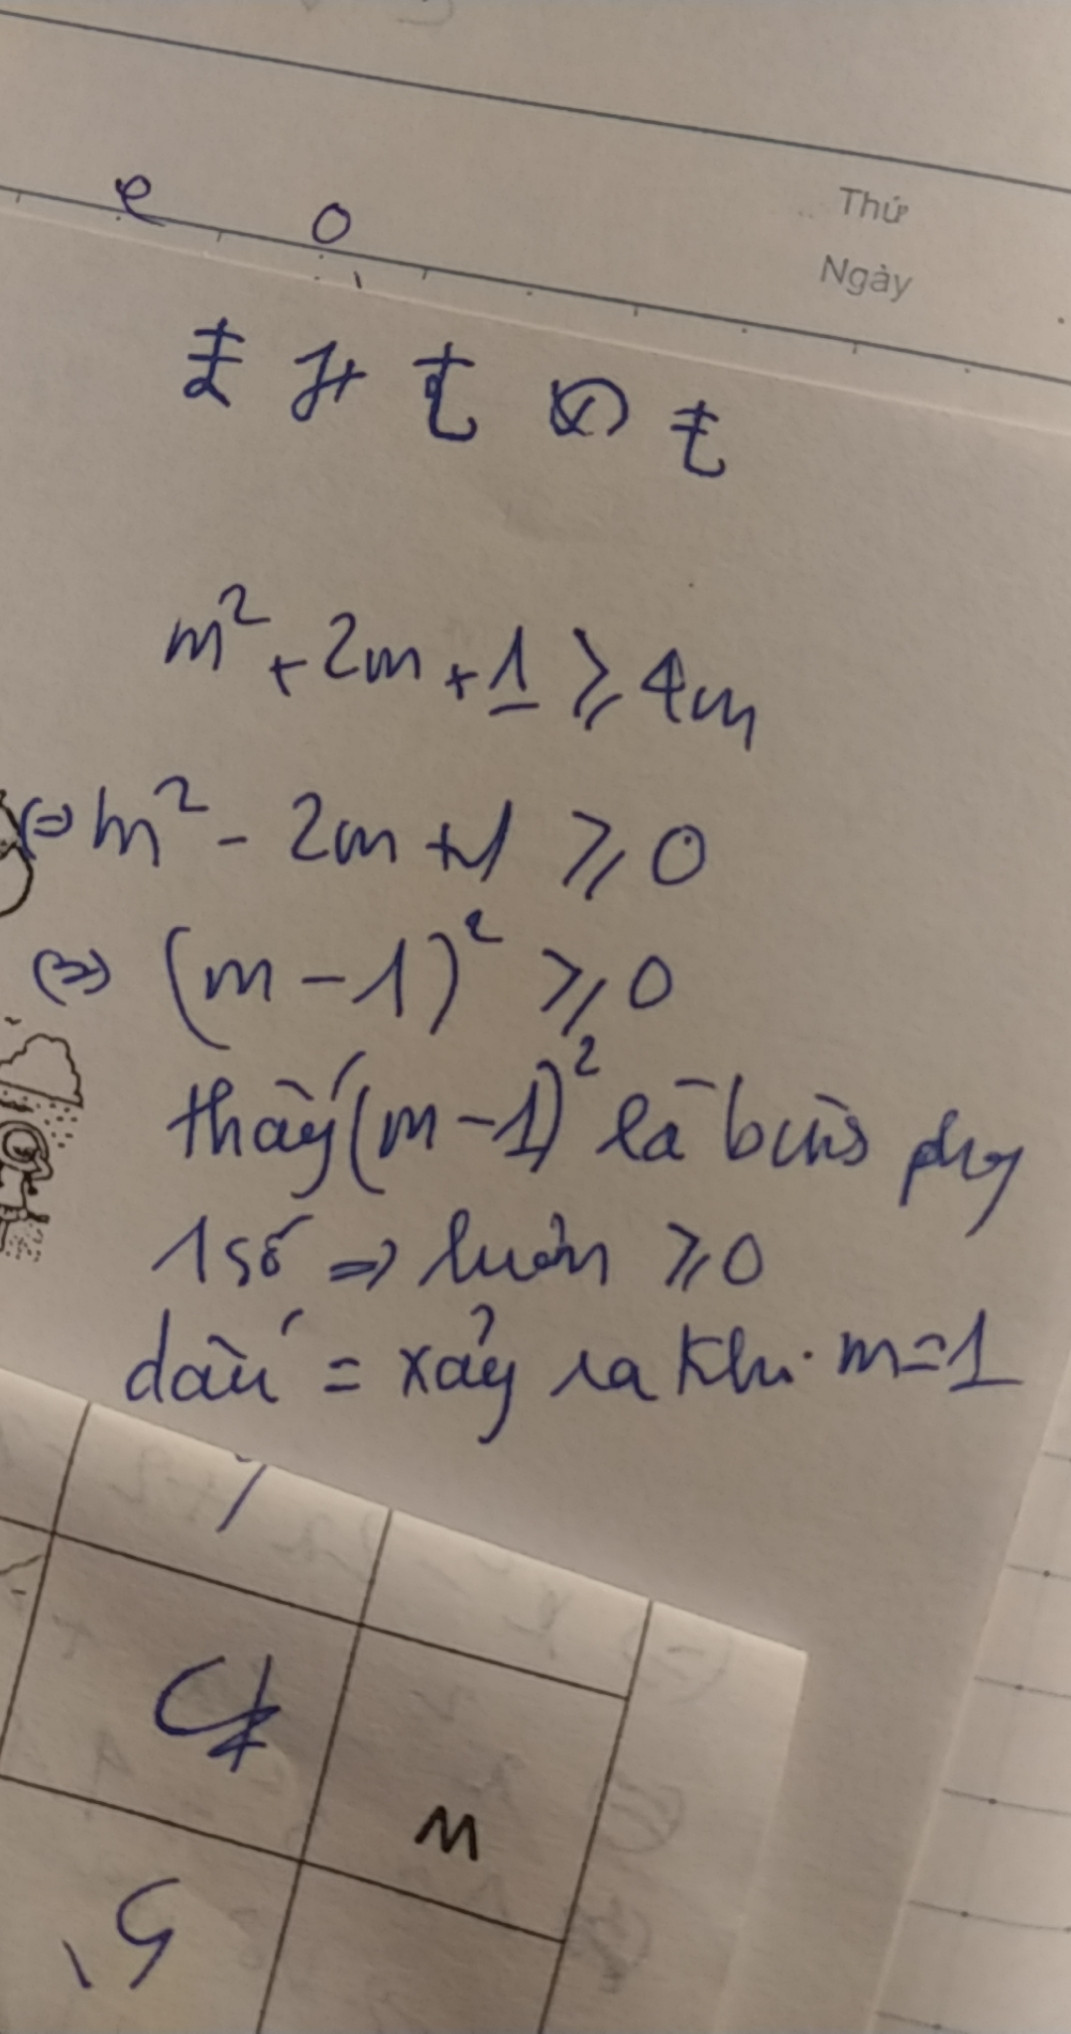 e o
Thứ
Ngày
ま み む め も
m² + 2m + 1 ≥ 4m
⇔ m² - 2m + 1 ≥ 0
⇔ (m - 1)² ≥ 0
thấy (m - 1)² là bình phg
1 số ⇒ luôn ≥ 0
dấu = xảy ra khi m = 1
M